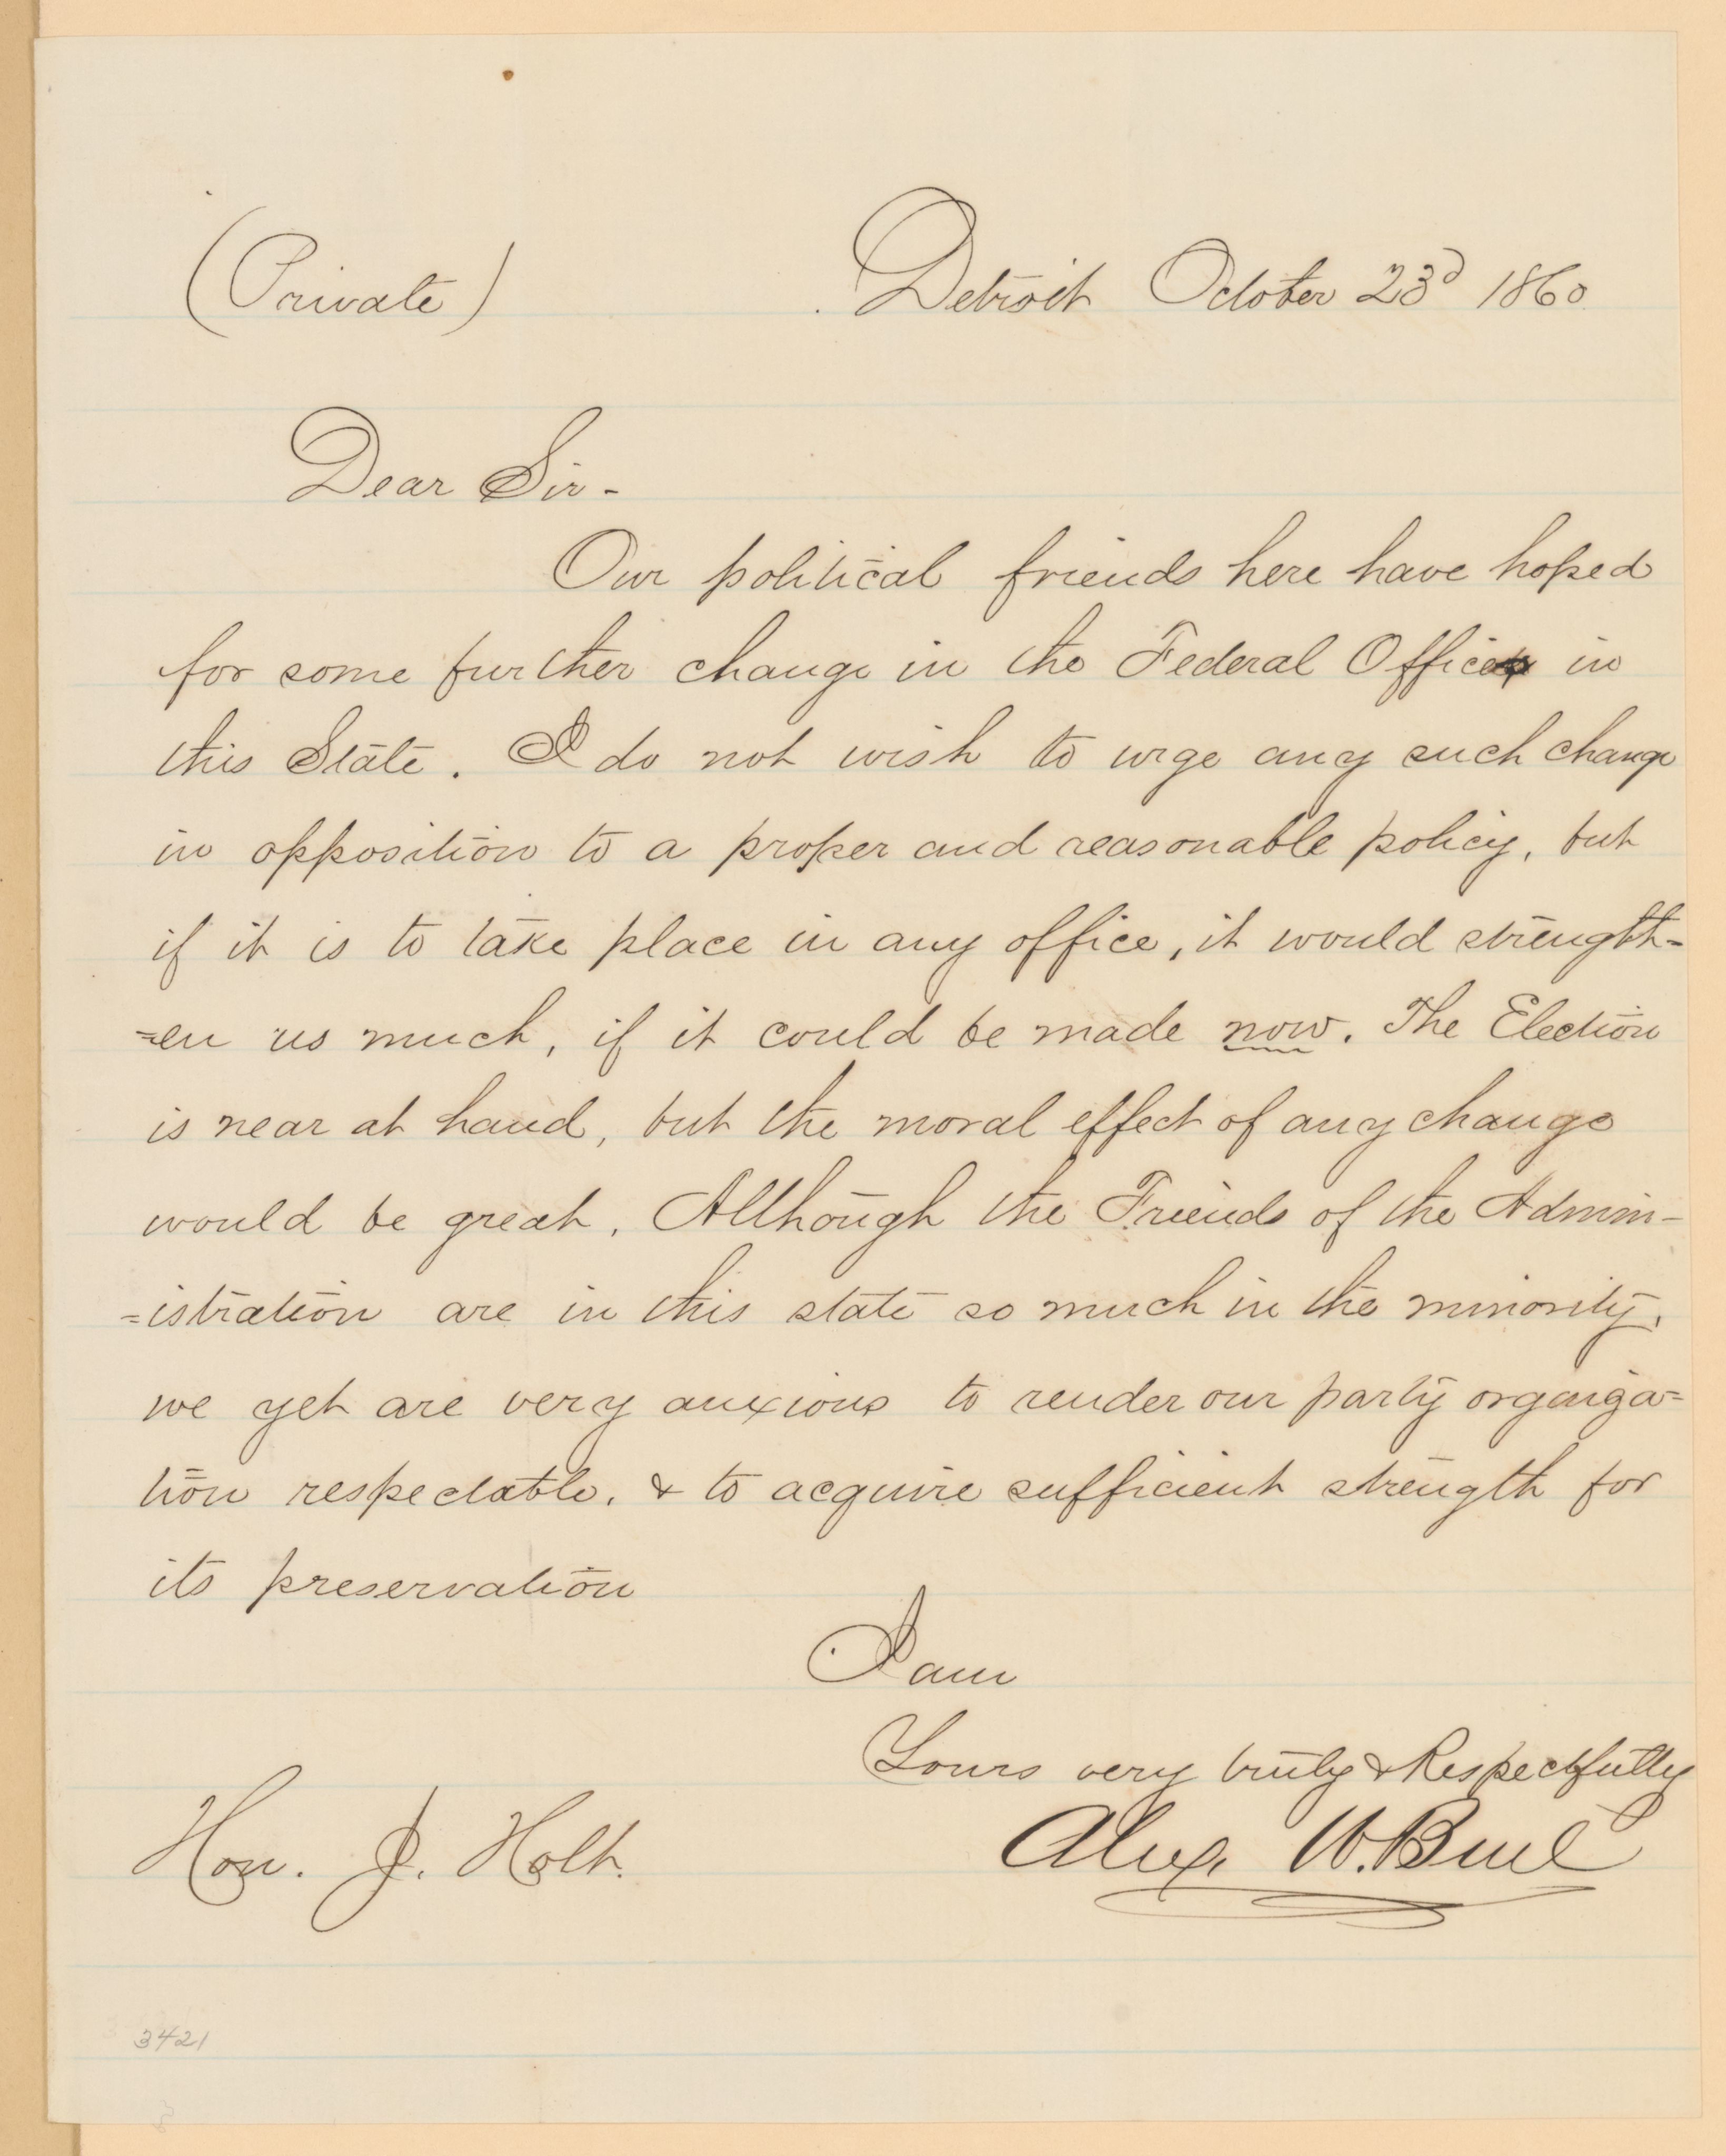 (Private) Detroit October 23d 1860
Dear Sir-
Our political friends here have hoped
for some further change in the Federal Offices in
this State. I do not wish to urge any such change
in opposition to a proper and reasonable policy, but
if it is to take place in any office, it would strength-
=en us much, if it could be made now. The Election
is near at hand, but the moral effect of any change
would be great. Although the Friends of the Admin-
=istration are in this state so much in the minority,
we yet are very anxious to render our party organiza=
tion respectable, & to acquire sufficient strength for
its preservation
I am
Yours very truly & Respectfully
Alex. W. Buel
Hon. J. Holt.
3421